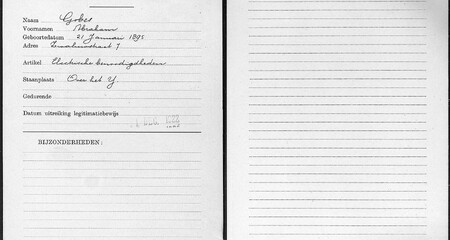 Naam Gobes
Voornamen Abraham
Geboortedatum 21 Januari 1895
Adres 7
Artikel Electrische benoodigdheden
Staanplaats Over het Y.
Gedurende
Datum uitreiking legitimatiebewijs
BIJZONDERHEDEN: